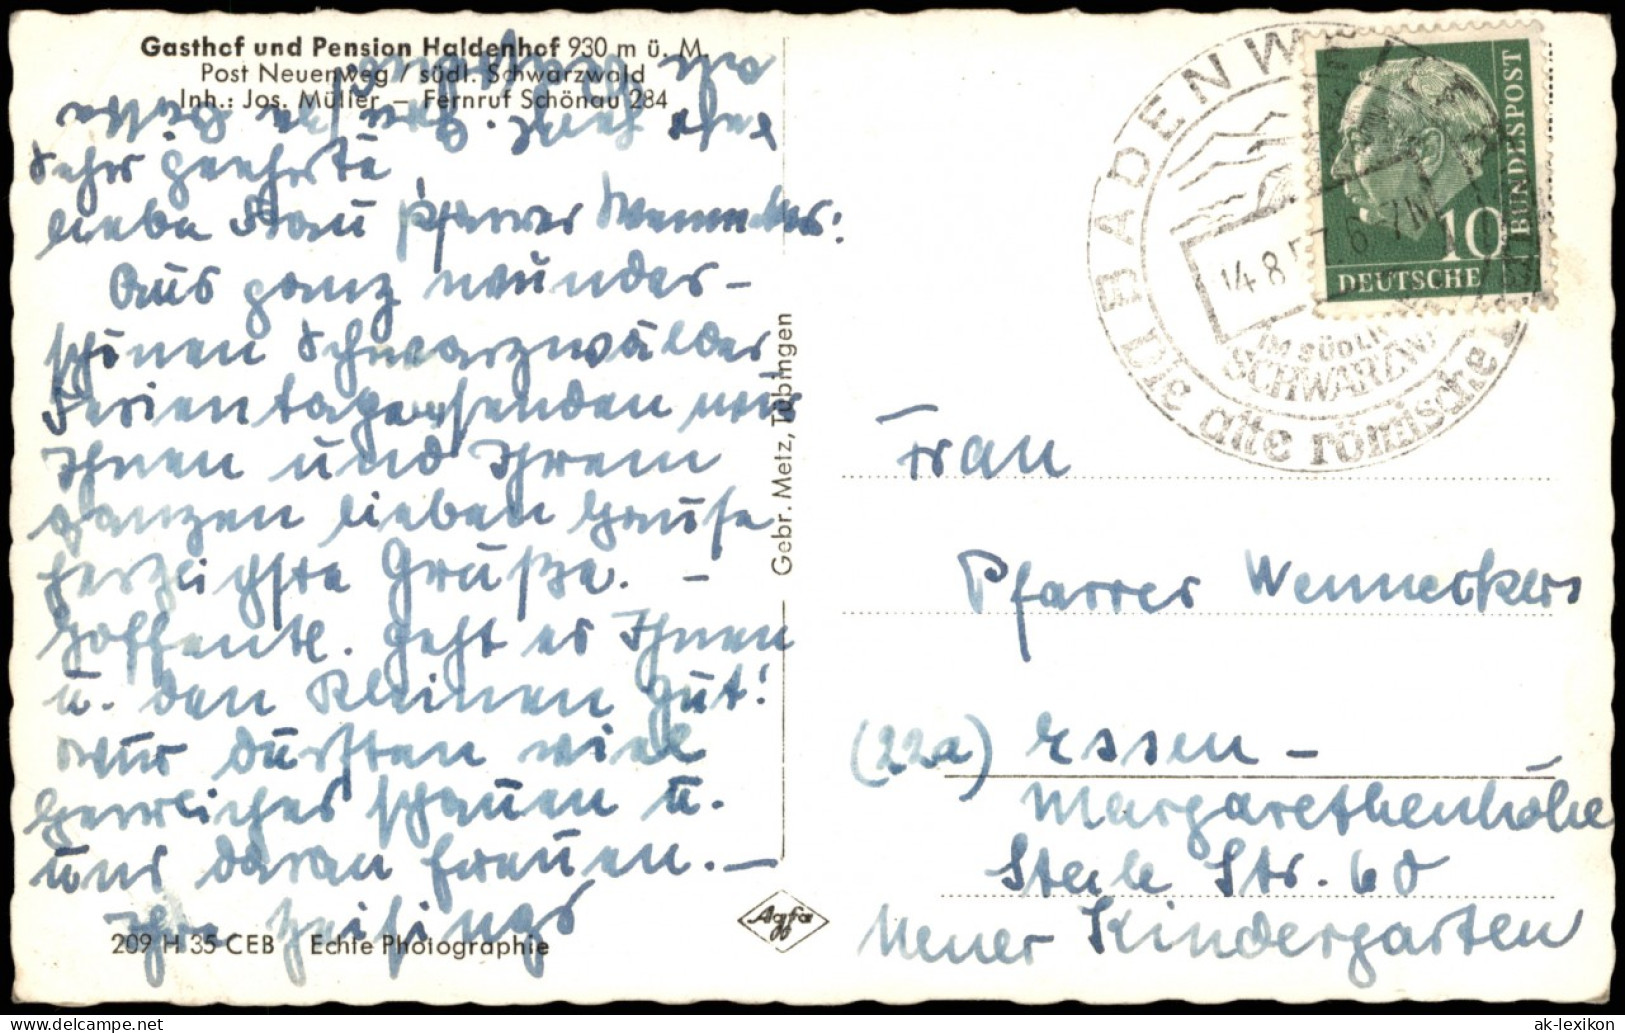 Gasthof und Pension Haldenhof 930 m ü. M.
Post Neuenweg / südl. Schwarzwald
Inh.: Jos. Müller — Fernruf Schönau 284
Sehr geehrte
liebe Frau Pfarrer Wennekers!
Aus ganz wunder-
schönen Schwarzwälder
Ferientagen senden wir
Ihnen und Ihrem
ganzen lieben Hause
herzlichste Grüße. –
Hoffentl. geht es Ihnen
u. den Kleinen gut!
Wir durften viel
Herrliches schauen u.
uns daran freuen. –
Ihre
209 H 35 CEB Echte Photographie
Gebr. Metz, Tübingen
Agfa
BADENWEILER
14.8.57
IM SÜDLI
SCHWARZW
Die alte römische
BUNDESPOST
10
DEUTSCHE
Frau
Pfarrer Wennekers
(22a) Essen –
Margarethenhöhe
Steile Str. 60
Neuer Kindergarten
ak-lexikon